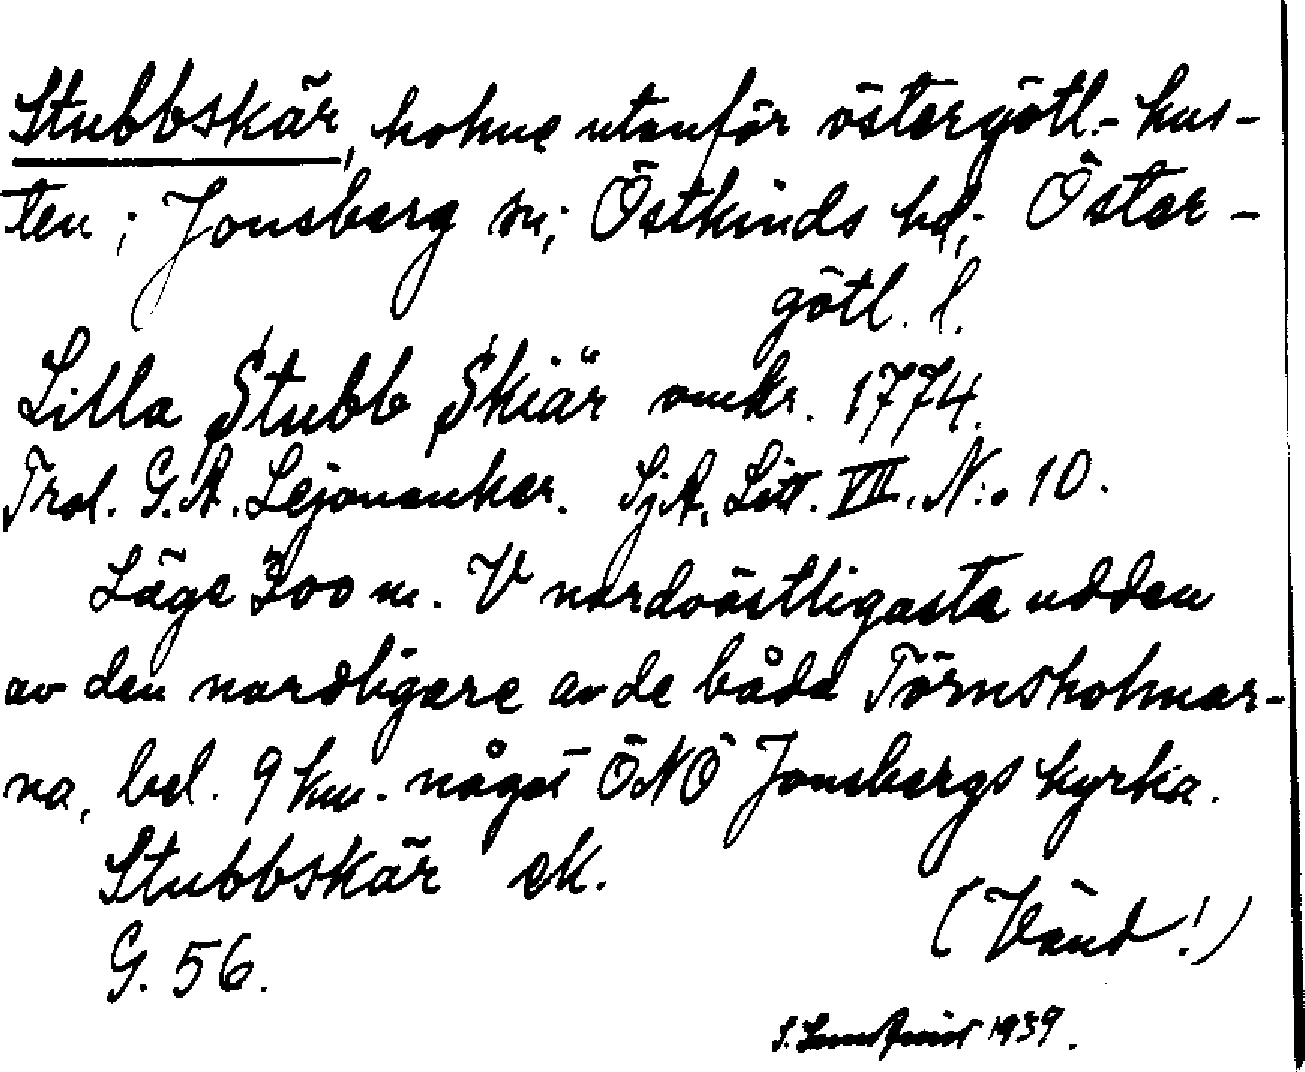 Stubbskär, holme utanför östergötl.- kus-
ten; Jonsberg sn; Östkinds hd; Öster-
götl. l.
Lilla Stubb Skiär omkr. 1774.
Trol. G. A. Lejonanker. SjA. Litt. VII. N:o 10.
Läge 300 m. V nordvästligaste udden
av den nordligare av de båda Törnsholmar-
na, bel. 9 km. något ÖNÖ Jonsbergs kyrka.
Stubbskär ek.
G. 56.
(Vänd!)
S. 1939.